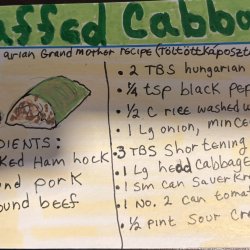 uffed Cabba
arian Grand Mother recipe (Töltött káposzt
DIENTS:
ked Ham hock
und pork
ound beef
• 2 TBS hungarian
• ¼ tsp black pep
• ½ C rice washed
• 1 Lg onion, mince
• 3 TBS Shortening
• 1 Lg head Cabbage
• 1 sm can Sauerkra
• 1 No. 2 can tomat
• ½ pint Sour Cr